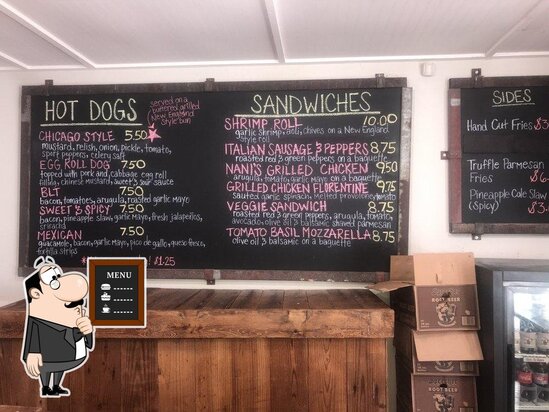 HOT DOGS
served on a
buttered grilled
New England
Style bun
CHICAGO STYLE 5.50
mustard, relish, onion, pickle, tomato,
sport peppers, celery salt
EGG ROLL DOG 7.50
topped with pork and cabbage egg roll
filling, chinese mustard, sweet & sour sauce
BLT 7.50
bacon, tomatoes, arugula, roasted garlic mayo
SWEET & SPICY 7.50
bacon, pineapple slaw, garlic Mayo, fresh jalapeños,
sriracha
MEXICAN 7.50
guacamole, bacon, garlic Mayo, pico de gallo, queso fresco,
tortilla strips
$1.25
SANDWICHES
SHRIMP ROLL 10.00
garlic shrimp, aoli, chives on a New England
style roll
ITALIAN SAUSAGE & PEPPERS 8.75
roasted red & green peppers on a baguette
NANI'S GRILLED CHICKEN 9.50
arugula, tomato, garlic Mayo on a baguette
GRILLED CHICKEN FLORENTINE 9.75
sauteed garlic spinach, melted provolone
VEGGIE SANDWICH 8.75
roasted red & green peppers, arugula, tomato,
avocado, olive oil & balsamic shaved parmesan
TOMATO BASIL MOZZARELLA 8.75
olive oil & balsamic on a baguette
SIDES
Hand Cut Fries $3
Truffle Parmesan
Fries $6
Pineapple Cole Slaw
(Spicy) $3
MENU
ROOT BEER
ROOT BEER